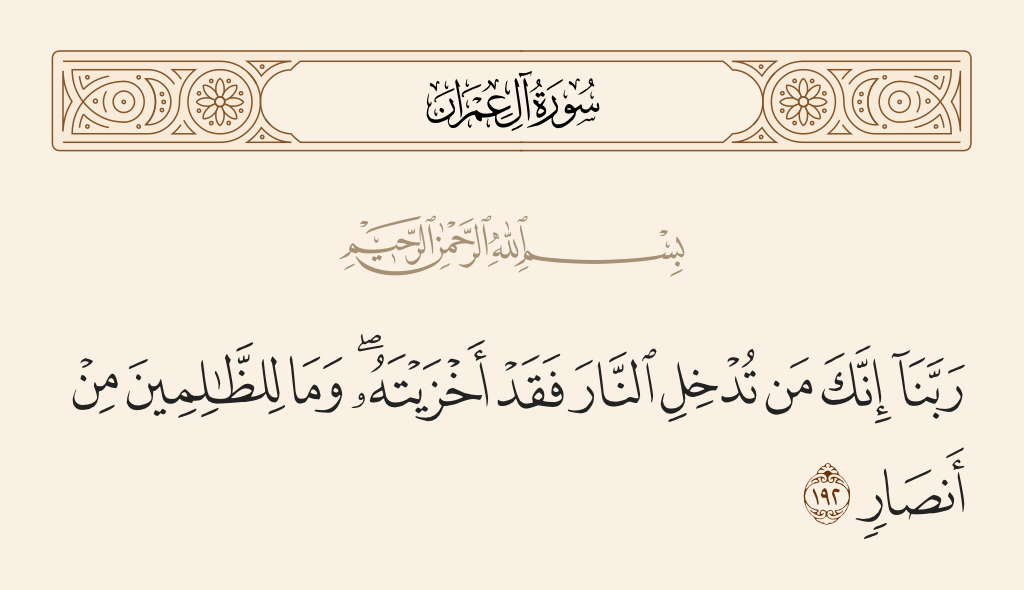 سُورَةُ آلِ عِمْرَانَ
بِسْمِ ٱللَّهِ ٱلرَّحْمَٰنِ ٱلرَّحِيمِ
رَبَّنَآ إِنَّكَ مَن تُدْخِلِ ٱلنَّارَ فَقَدْ أَخْزَيْتَهُۥ ۖ وَمَا لِلظَّـٰلِمِينَ مِنْ
أَنصَارٍ ١٩٢